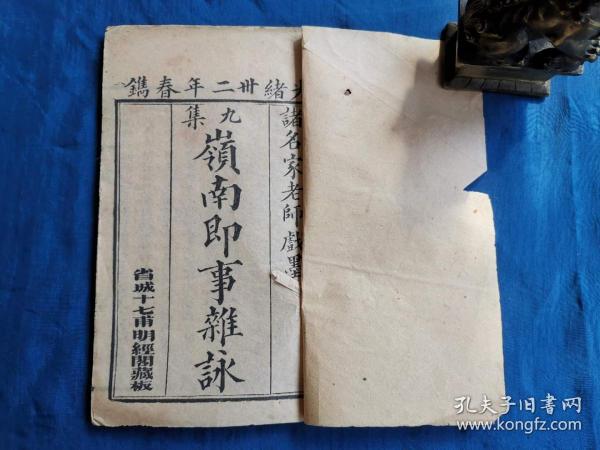 光緒卅二年春鐫
諸名家老師戲墨
九集
嶺南即事雜詠
省城十七甫明經閣藏板
孔夫子旧书网
www.kongfz.com